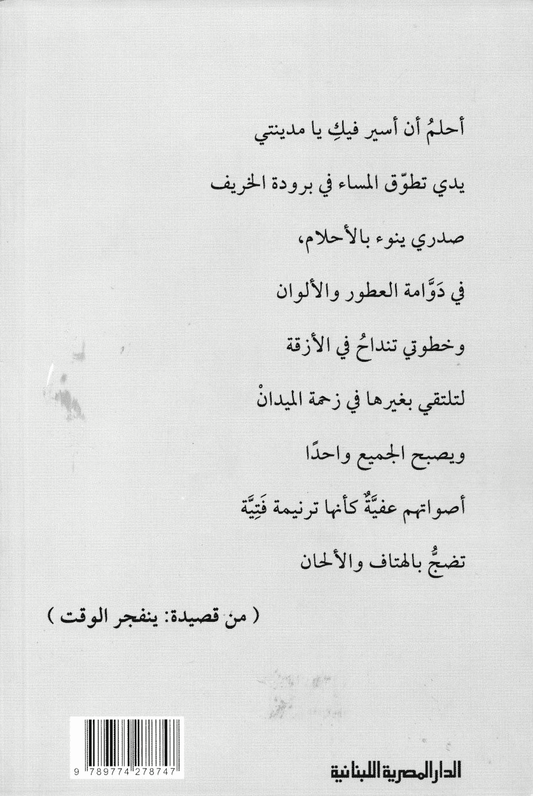 أحلمُ أن أسير فيكِ يا مدينتي
يدي تطوّق المساء في برودة الخريف
صدري ينوء بالأحلام،
في دَوَّامة العطور والألوان
وخطوتي تنداحُ في الأزقة
لتلتقي بغيرها في زحمة الميدانْ
ويصبح الجميع واحدًا
أصواتهم عفيَّةٌ كأنها ترنيمة فَتِيَّة
تضجُّ بالهتاف والألحان
( من قصيدة: ينفجر الوقت )
9 789774 278747
الدار المصرية اللبنانية